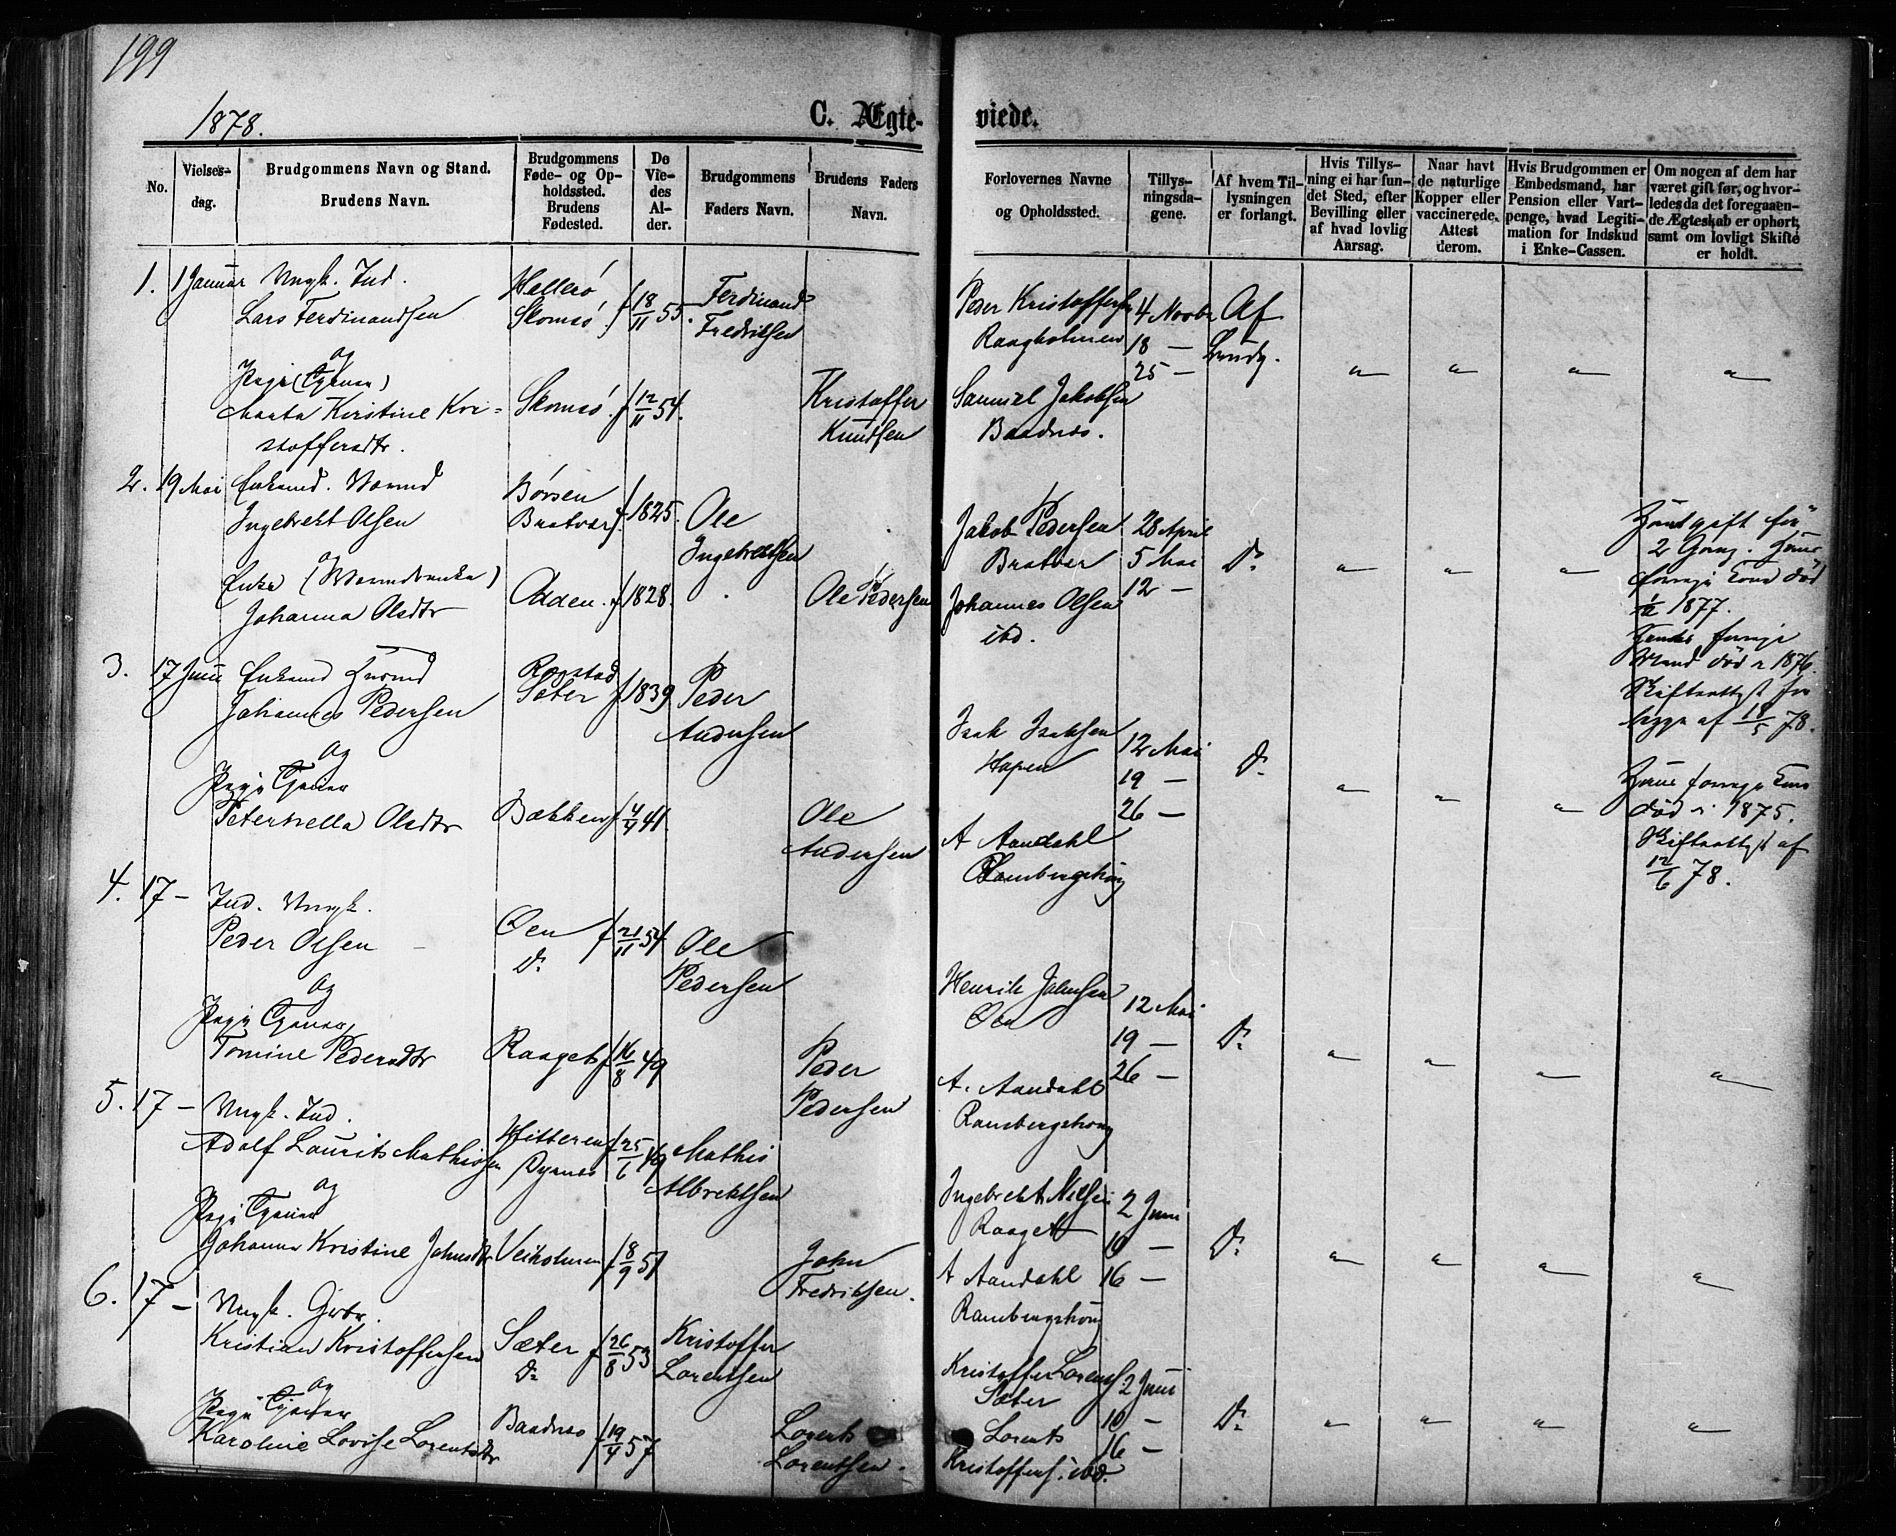 199
1878.
C. Ægte-
viede.
No.
Vielses-
dag.
Brudgommens Navn og Stand.
Brudens Navn.
Brudgommens
Føde- og Op-
holdssted.
Brudens
Fødested.
De
Vie-
des
Al-
der.
Brudgommens
Faders Navn.
Brudens Faders
Navn.
Forlovernes Navne
og Opholdssted.
Tillys-
ningsda-
gene.
Af hvem Til-
lysningen
er forlangt.
Hvis Tillys-
ning ei har fun-
det Sted, efter
Bevilling eller
af hvad lovlig
Aarsag.
Naar havt
de naturlige
Kopper eller
vaccinerede.
Attest
derom.
Hvis Brudgommen er
Embedsmand, har
Pension eller Vart-
penge, hvad Legiti-
mation for Indskud
i Enke-Cassen.
Om nogen af dem har
været gift før, og hvor-
ledes da det foregaaen-
de Ægteskab er ophørt,
samt om lovligt Skifte
er holdt.
1. 1 Januar Ungk. Ind.
Lars Ferdinandsen
og
Pige (Tjener)
Marta Kirstine Kri-
stoffersdtr.
Skomsø. f 18/11 55.
Skomsø. f 12/11 54.
Ferdinand
Fredriksen
Kristoffer
Knudsen
Peder Kristoffersen
Raagholmen
Samuel Jakobsen
Baadnes.
4 Novbr
18 —
25 —
Af
2. 19 Mai Enkemd.
Ingebrekt Olsen
og
Enke
Johanna Olsdtr
Børsen
Bratvær f. 1825.
Odden. f 1828.
Ole
Ingebrektsen
Ole Pedersen
Jakob Pedersen
Bratvær
Johannes Olsen
ibd.
28 April
5 Mai
12 —
Do
Han gift før
2 Gang. Hans
forrige Kone død
1877.
Hendes forrige
Mand død i 1876.
Skifteattest for
begge af 18/5 78.
3. 17 Juni Enkemd
Johannes Pedersen
og
Pige Tjener
Peternella Olsdtr
Rogstad
Sæter f 1839
Bækken f 4/4 41.
Peder
Andersen
Ole
Andersen
Isak Isaksen
Hopen
A Aandahl
Ramberghaug
12 Mai
19 —
26 —
Do
Hans forrige Kone
død i 1875.
Skifteattest af
12/6 78.
4. 17 — Ind. Ungk.
Peder Olsen
og
Pige Tjener
Tomine Pedersdtr
Øen f 21/11 54
Do
Raaget f 16/8 49
Ole
Pedersen
Peder
Pedersen
Henrik Johnsen
Øen
A. Aandahl
Ramberghaug
12 Mai
19 —
26 —
Do
5. 17 — Ungk. Ind.
Adolf Laurits Mathisen
og
Pige Tjener
Johanna Kristine Johnsdtr
Hitteren f 25/6 49
Dyrnes
Veiholmen f 8/9 51
Mathis
Albrektsen
John
Fredriksen.
Ingebrekt Nilsen
Raaget
A Aandahl
Ramberghaug
2 Juni
10 —
16 —
Do
6. 17 — Ungk. Gbr.
Kristian Kristoffersen
og
Pige Tjener
Karoline Lovise Lorentsdtr
Sæter f 26/8 53
Do
Baadnes f 19/4 57
Kristoffer
Lorentsen
Lorents
Lorentsen.
Kristoffer Lorents.
Sæter
Lorents
Kristoffers. ibd.
2 Juni
10 —
16 —
Do